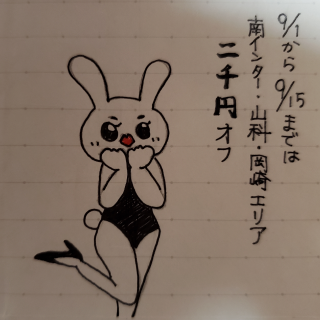 9/1から9/15までは
南インター・山科・岡崎エリア
二千円オフ